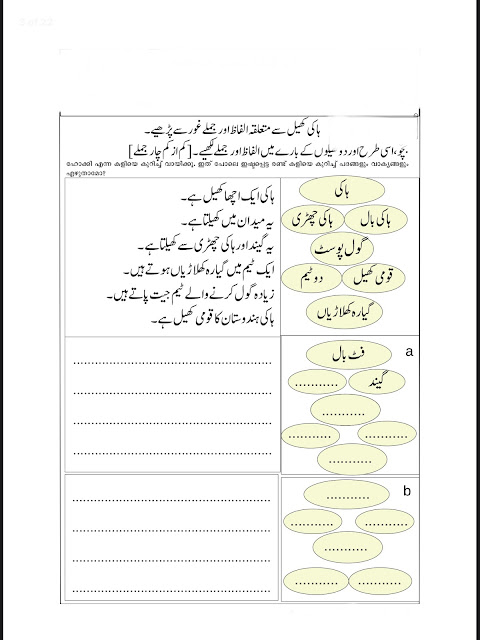 5 of 22
ہاکی کھیل سے متعلقہ الفاظ اور جملے غور سے پڑھیے۔
بچو، اسی طرح اور دو کھیلوں کے بارے میں الفاظ اور جملے لکھیے۔ [کم از کم چار جملے]
ഹോക്കി എന്ന കളിയെ കുറിച്ച് വായിക്കൂ. ഇത് പോലെ ഇഷ്ടപ്പെട്ട രണ്ട് കളിയെ കുറിച്ച് പദങ്ങളും വാക്യങ്ങളും
എഴുതാമോ?
ہاکی
ہاکی ایک اچھا کھیل ہے۔
ہاکی بال ہاکی چھڑی
یہ میدان میں کھیلتا ہے۔
گول پوسٹ
یہ گیند اور ہاکی چھڑی سے کھیلتا ہے۔
قومی کھیل دو ٹیم
ایک ٹیم میں گیارہ کھلاڑیاں ہوتے ہیں۔
زیادہ گول کرنے والے ٹیم جیت پاتے ہیں۔
گیارہ کھلاڑیاں
ہاکی ہندوستان کا قومی کھیل ہے۔
a
فٹ بال
گیند
b